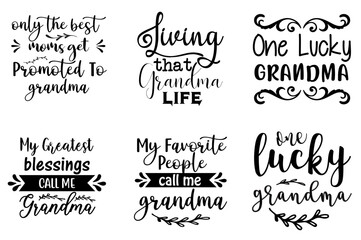 only the best
moms get
Promoted To
grandma
Living
that
Grandma
LIFE
One Lucky
GRANDMA
My Greatest
blessings
CALL ME
Grandma
My Favorite
People
call me
grandma
one
lucky
grandma